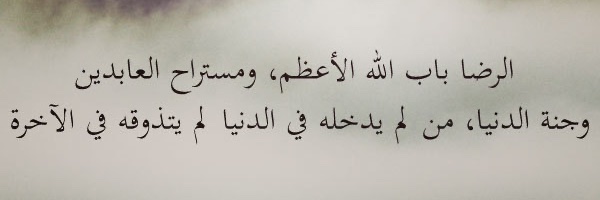 الرضا باب الله الأعظم، ومستراح العابدين
وجنة الدنيا، من لم يدخله في الدنيا لم يتذوقه في الآخرة